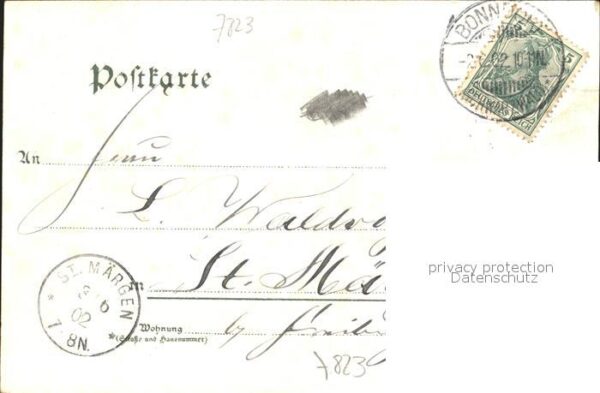 7823
Postkarte
BONNDORF
5 5
DEUTSCHES REICH
An
L. Waldvog
St. Mä
in
ST. MÄRGEN
02
7-8N.
Wohnung
(Straße und Hausnummer)
7823
privacy protection
Datenschutz